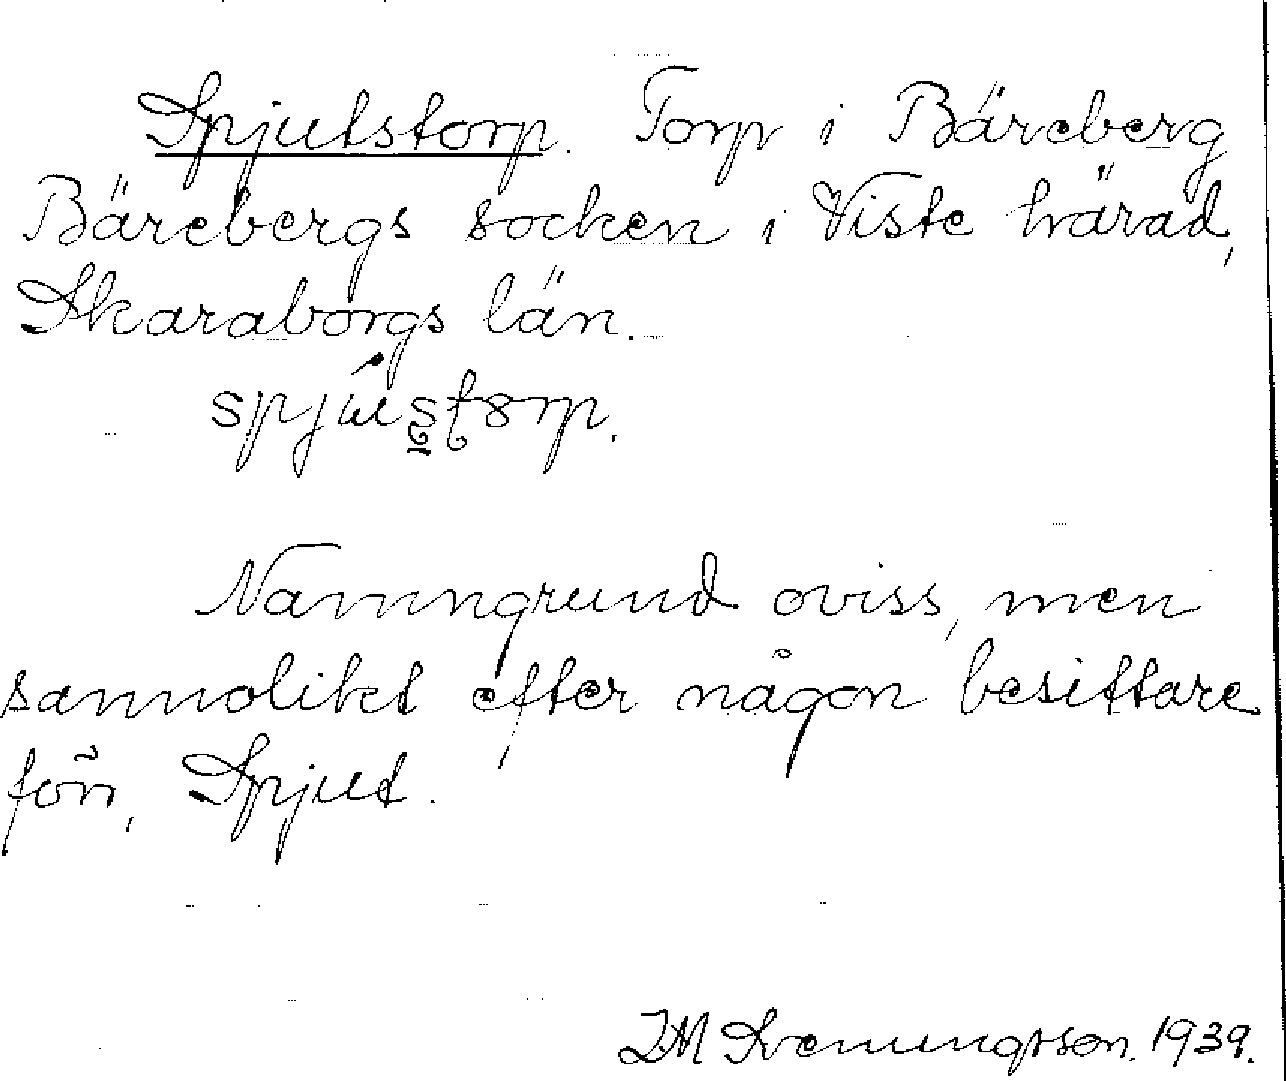 Spjutstorp. Torp i Bäreberg
Bärebergs socken i Viste härad,
Skaraborgs län.
spju̇storp.
Namngrund oviss, men
sannolikt efter någon besittare
för, Spjut.
1939.